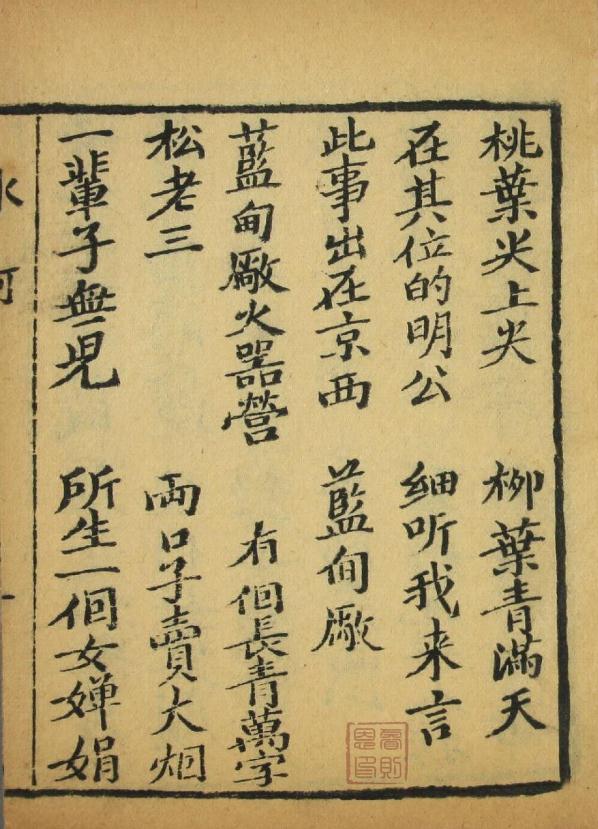 桃葉尖上尖　柳葉青滿天
在其位的明公　細听我来言
此事出在京西　藍甸厰
藍甸厰火器營　有個長青萬字
松老三　両口子賣大烟
一輩子無兒　所生一個女嬋娟